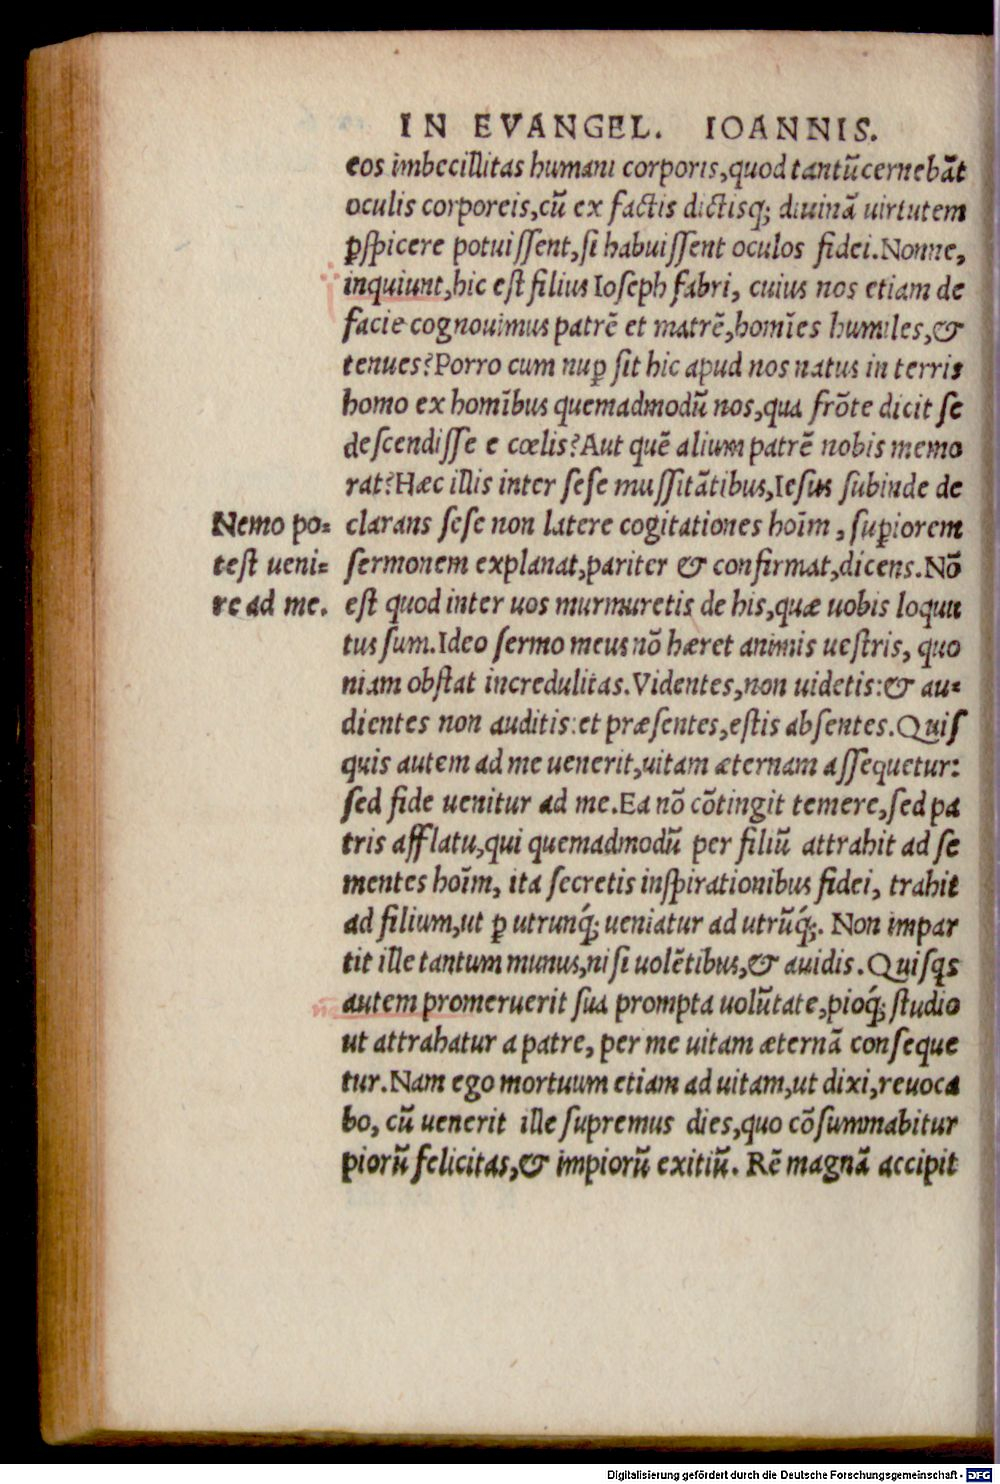 IN EVANGEL. IOANNIS.
eos imbecillitas humani corporis,quod tantũ cernebãt
oculis corporeis,cũ ex factis dictisq́; diuinã uirtutem
ꝑspicere potuiſſent,ſi habuiſſent oculos fidei.Nonne,
inquiunt,hic eſt filius Ioſeph fabri, cuius nos etiam de
facie cognouimus patrẽ et matrẽ,homĩes humiles,&
tenues?Porro cum nuꝑ ſit hic apud nos natus in terris
homo ex homĩbus quemadmodũ nos,qua frõte dicit ſe
deſcendiſſe e cœlis?Aut quẽ alium patrẽ nobis memo
rat?Hæc illis inter ſeſe muſſitãtibus,Ieſus ſubinde de
Nemo po=
teſt ueni=
re ad me.
clarans ſeſe non latere cogitationes hoĩm , ſuꝑiorem
ſermonem explanat,pariter & confirmat,dicens.Nõ
eſt quod inter uos murmuretis de his,quæ uobis loquu
tus ſum.Ideo ſermo meus nõ hæret animis ueſtris, quo
niam obſtat incredulitas.Videntes,non uidetis:& au=
dientes non auditis:et præſentes,eſtis abſentes.Quiſ
quis autem ad me uenerit,uitam æternam aſſequetur:
ſed fide uenitur ad me.Ea nõ cõtingit temere,ſed pa
tris afflatu,qui quemadmodũ per filiũ attrahit ad ſe
mentes hoĩm, ita ſecretis inſpirationibus fidei, trahit
ad filium,ut ꝑ utrunq́; ueniatur ad utrũq́;. Non impar
tit ille tantum munus,niſi uolẽtibus,& auidis.Quiſqs
autem promeruerit ſua prompta uolũtate,pioq́; ſtudio
ut attrahatur a patre, per me uitam æternã conſeque
tur.Nam ego mortuum etiam ad uitam,ut dixi,reuoca
bo, cũ uenerit ille ſupremus dies,quo cõſummabitur
piorũ felicitas,& impiorũ exitiũ. Rẽ magnã accipit
Digitalisierung gefördert durch die Deutsche Forschungsgemeinschaft - DFG